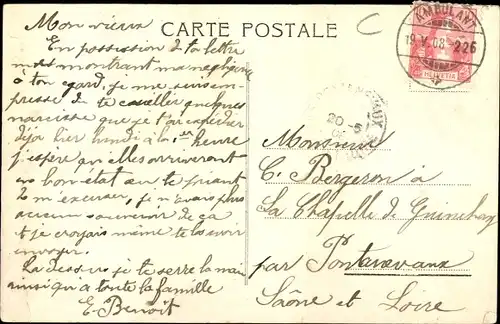 CARTE POSTALE
C
AMBULANT
19. V. 08. - 226
HELVETIA
20-5
08
Mon vieux
En possession de ta lettre
me montrant ma négligence
à ton égard, je me suis em-
pressé de te cueillir quelques
narcisses que je t'ai expédier
déja hier lundi à la 1ère heure
j'espère qu'elles arriveront
en bon état en te priant
d'm'excuser, je n'avais plus
aucun souvenir de ça
et je croyais même te l'avoir
envoyer.
La dessus je te serre la main
ainsi qu'a toute la famille
E. Benoit
Monsieur
C. Bergeron à
La Chapelle de Guinchay
par Pontanevaux
Saône et Loire